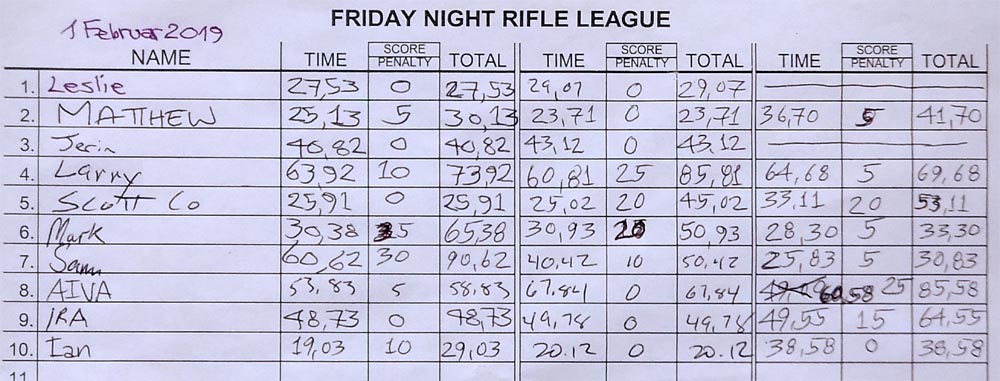 FRIDAY NIGHT RIFLE LEAGUE
1 Februar 2019
NAME TIME SCORE PENALTY TOTAL TIME SCORE PENALTY TOTAL TIME SCORE PENALTY TOTAL
1. Leslie 27,53 0 27,53 29,07 0 29,07
2. MATTHEW 25,13 5 30,13 23,71 0 23,71 36,70 5 41,70
3. Jerin 40,82 0 40,82 43,12 0 43,12
4. Larry 63,92 10 73,92 60,81 25 85,81 64,68 5 69,68
5. Scott Co 25,91 0 25,91 25,02 20 45,02 33,11 20 53,11
6. Mark 30,38 35 65,38 30,93 20 50,93 28,30 5 33,30
7. Sam 60,62 30 90,62 40,42 10 50,42 25,83 5 30,83
8. AIVA 53,83 5 58,83 67,84 0 67,84 60,58 25 85,58
9. IRA 48,73 0 48,73 49,78 0 49,78 49,55 15 64,55
10. Ian 19,03 10 29,03 20.12 0 20.12 38,58 0 38,58
11